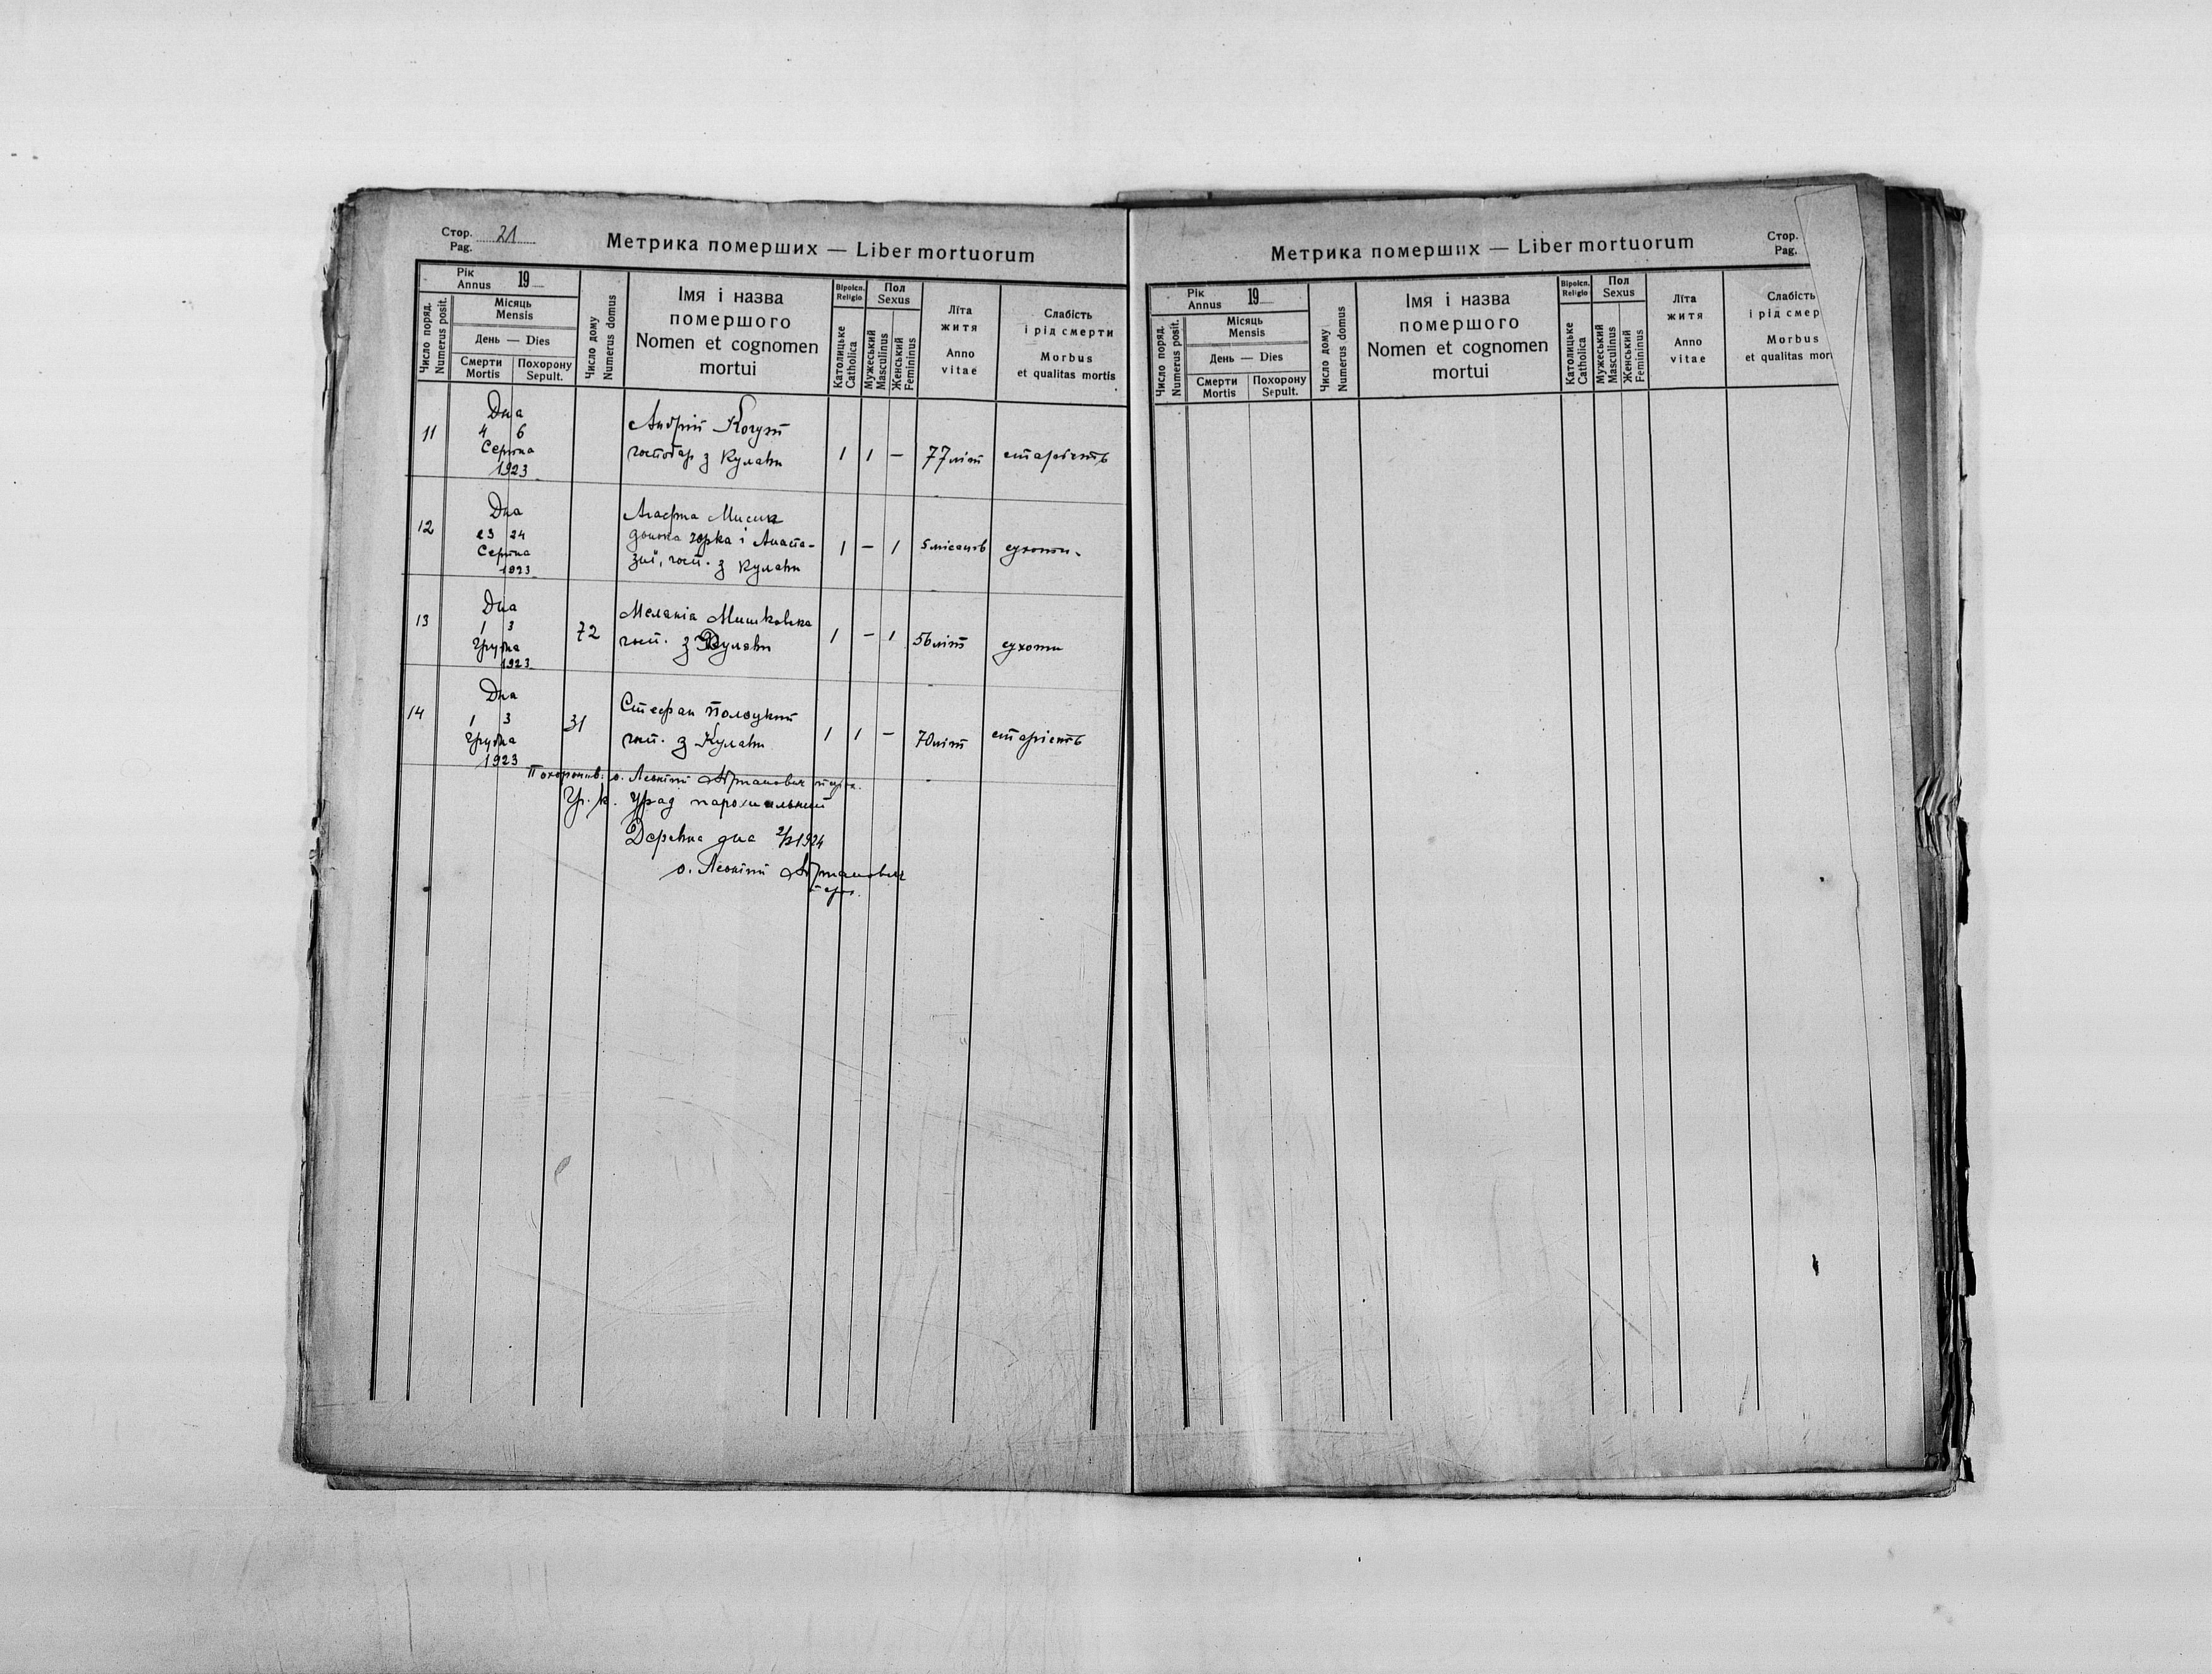 Стор. 21
Pag.
Метрика померших — Liber mortuorum
Рік
Annus 19
Число поряд.
Numerus posit.
Місяць
Mensis
День — Dies
Смерти
Mortis
Похорону
Sepult.
Число дому
Numerus domus
Імя і назва
помершого
Nomen et cognomen
mortui
Віроісп.
Religio
Католицьке
Catholica
Пол
Sexus
Мужеський
Masculinus
Женський
Femininus
Літа
житя
Anno
vitae
Слабість
і рід смерти
Morbus
et qualitas mortis
11
Дня
4 6
Серпня
1923
Андрій
господар з Кулави
1 1 — 77 літ старість
12
Дня
23 24
Серпня
1923
Агафта Мисик
донька Юрка і Анаста-
зиї, госп. з Кулави
1 — 1 5 місяців сухоти
13
Дня
1 3
Грудня
1923
72
Меланія Мишковска
госп. з Кулави
1 — 1 56 літ сухоти
14
Дня
1 3
Грудня
1923
31
Стефан
госп. з Кулави
1 1 — 70 літ старість
Похоронив: о. Леонтій
Гр. к. Уряд парохіяльний
Деревня дня 2/2 1924
о. Леонтій
Метрика померших — Liber mortuorum
Стор.
Pag.
Рік
Annus 19
Число поряд.
Numerus posit.
Місяць
Mensis
День — Dies
Смерти
Mortis
Похорону
Sepult.
Число дому
Numerus domus
Імя і назва
помершого
Nomen et cognomen
mortui
Віроісп.
Religio
Католицьке
Catholica
Пол
Sexus
Мужеський
Masculinus
Женський
Femininus
Літа
житя
Anno
vitae
Слабість
і рід смер
Morbus
et qualitas mor